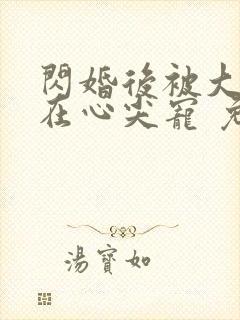 閃婚後被大
在心尖寵
湯寶如